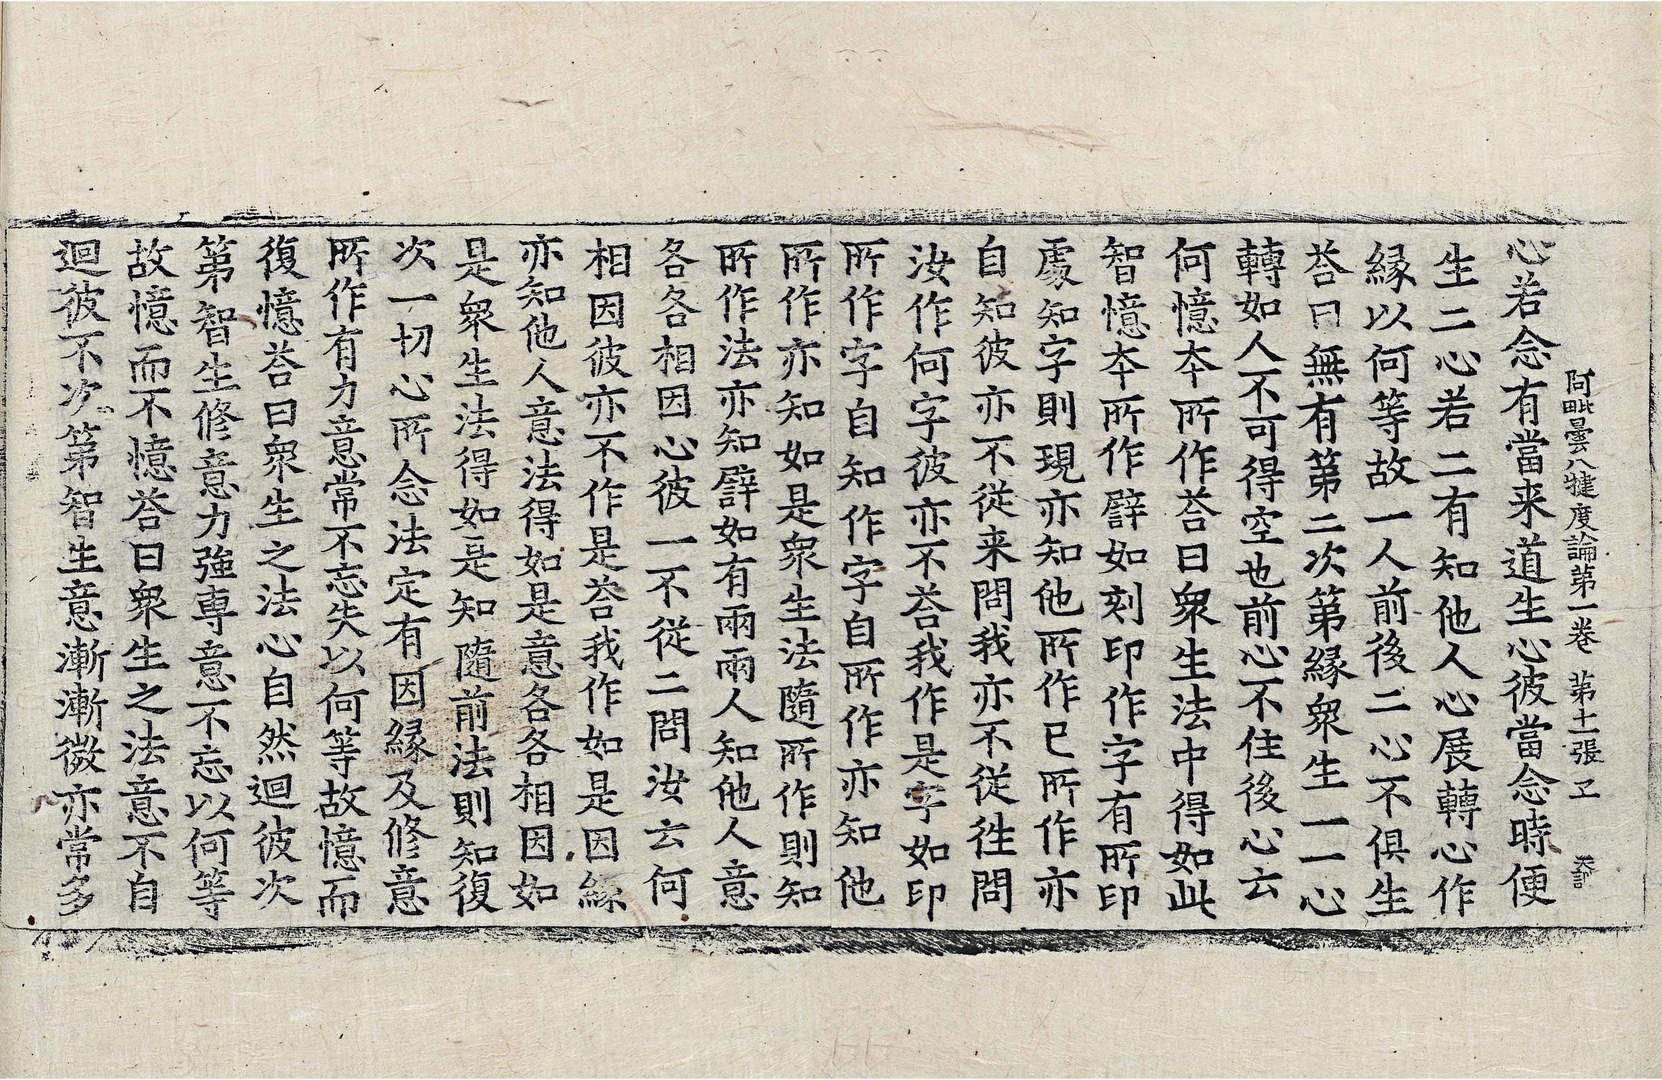 阿毗曇八犍度論第一卷　第十一張　彐　天訓
心若念有當来道生心彼當念時便
生二心若二有知他人心展轉心作
緣以何等故一人前後二心不俱生
荅曰無有第二次第緣衆生一一心
轉如人不可得空也前心不住後心云
何憶夲所作荅曰衆生法中得如此
智憶夲所作譬如刻印作字有所印
處知字則現亦知他所作已所作亦
自知彼亦不從来問我亦不從徃問
汝作何字彼亦不荅我作是字如印
所作字自知作字自所作亦知他
所作亦知如是衆生法隨所作則知
所作法亦知譬如有兩兩人知他人意
各各相因心彼一不從二問汝云何
相因彼亦不作是荅我作如是因緣
亦知他人意法得如是意各各相因如
是衆生法得如是知隨前法則知復
次一切心所念法定有因緣及修意
所作有力意常不忘失以何等故憶而
復憶荅曰衆生之法心自然迴彼次
第智生修意力強専意不忘以何等
故憶而不憶荅曰衆生之法意不自
迴彼不次第智生意漸漸微亦常多